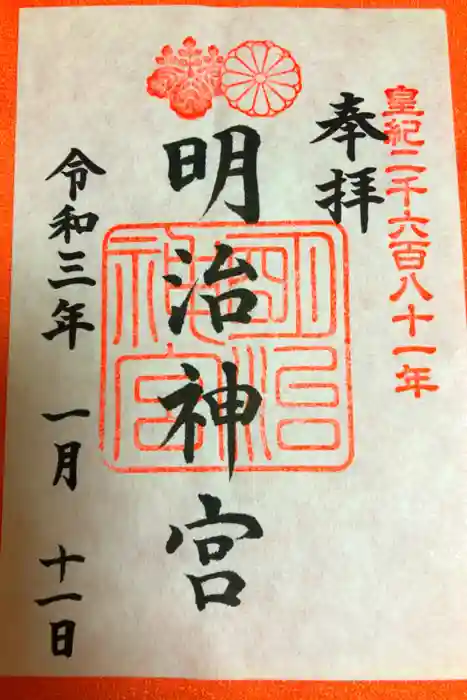 皇紀二千六百八十一年
奉拝
明治神宮
明治神宮
令和三年 一月 十一日